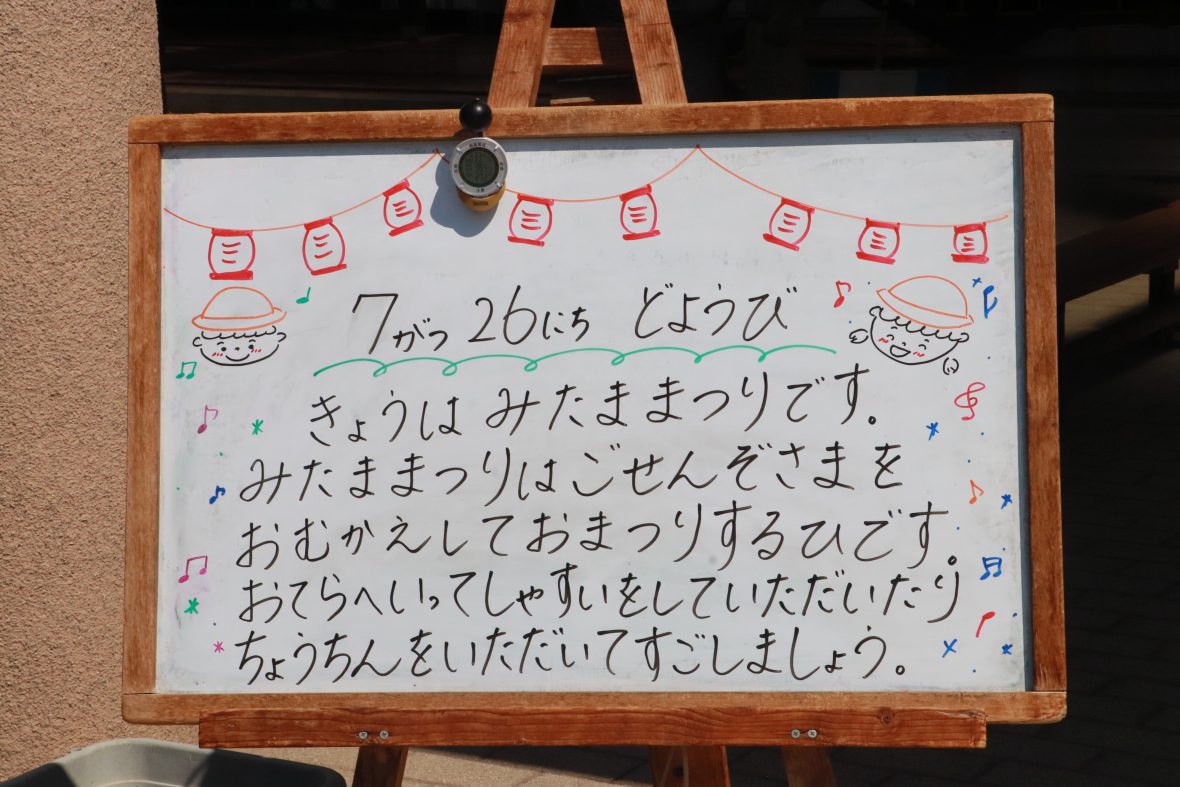 7がつ 26にち どようび
きょうは みたままつりです。
みたままつりはごせんぞさまを
おむかえしておまつりするひです。
おてらへいってしゃすいをしていただいたり
ちょうちんをいただいてすごしましょう。